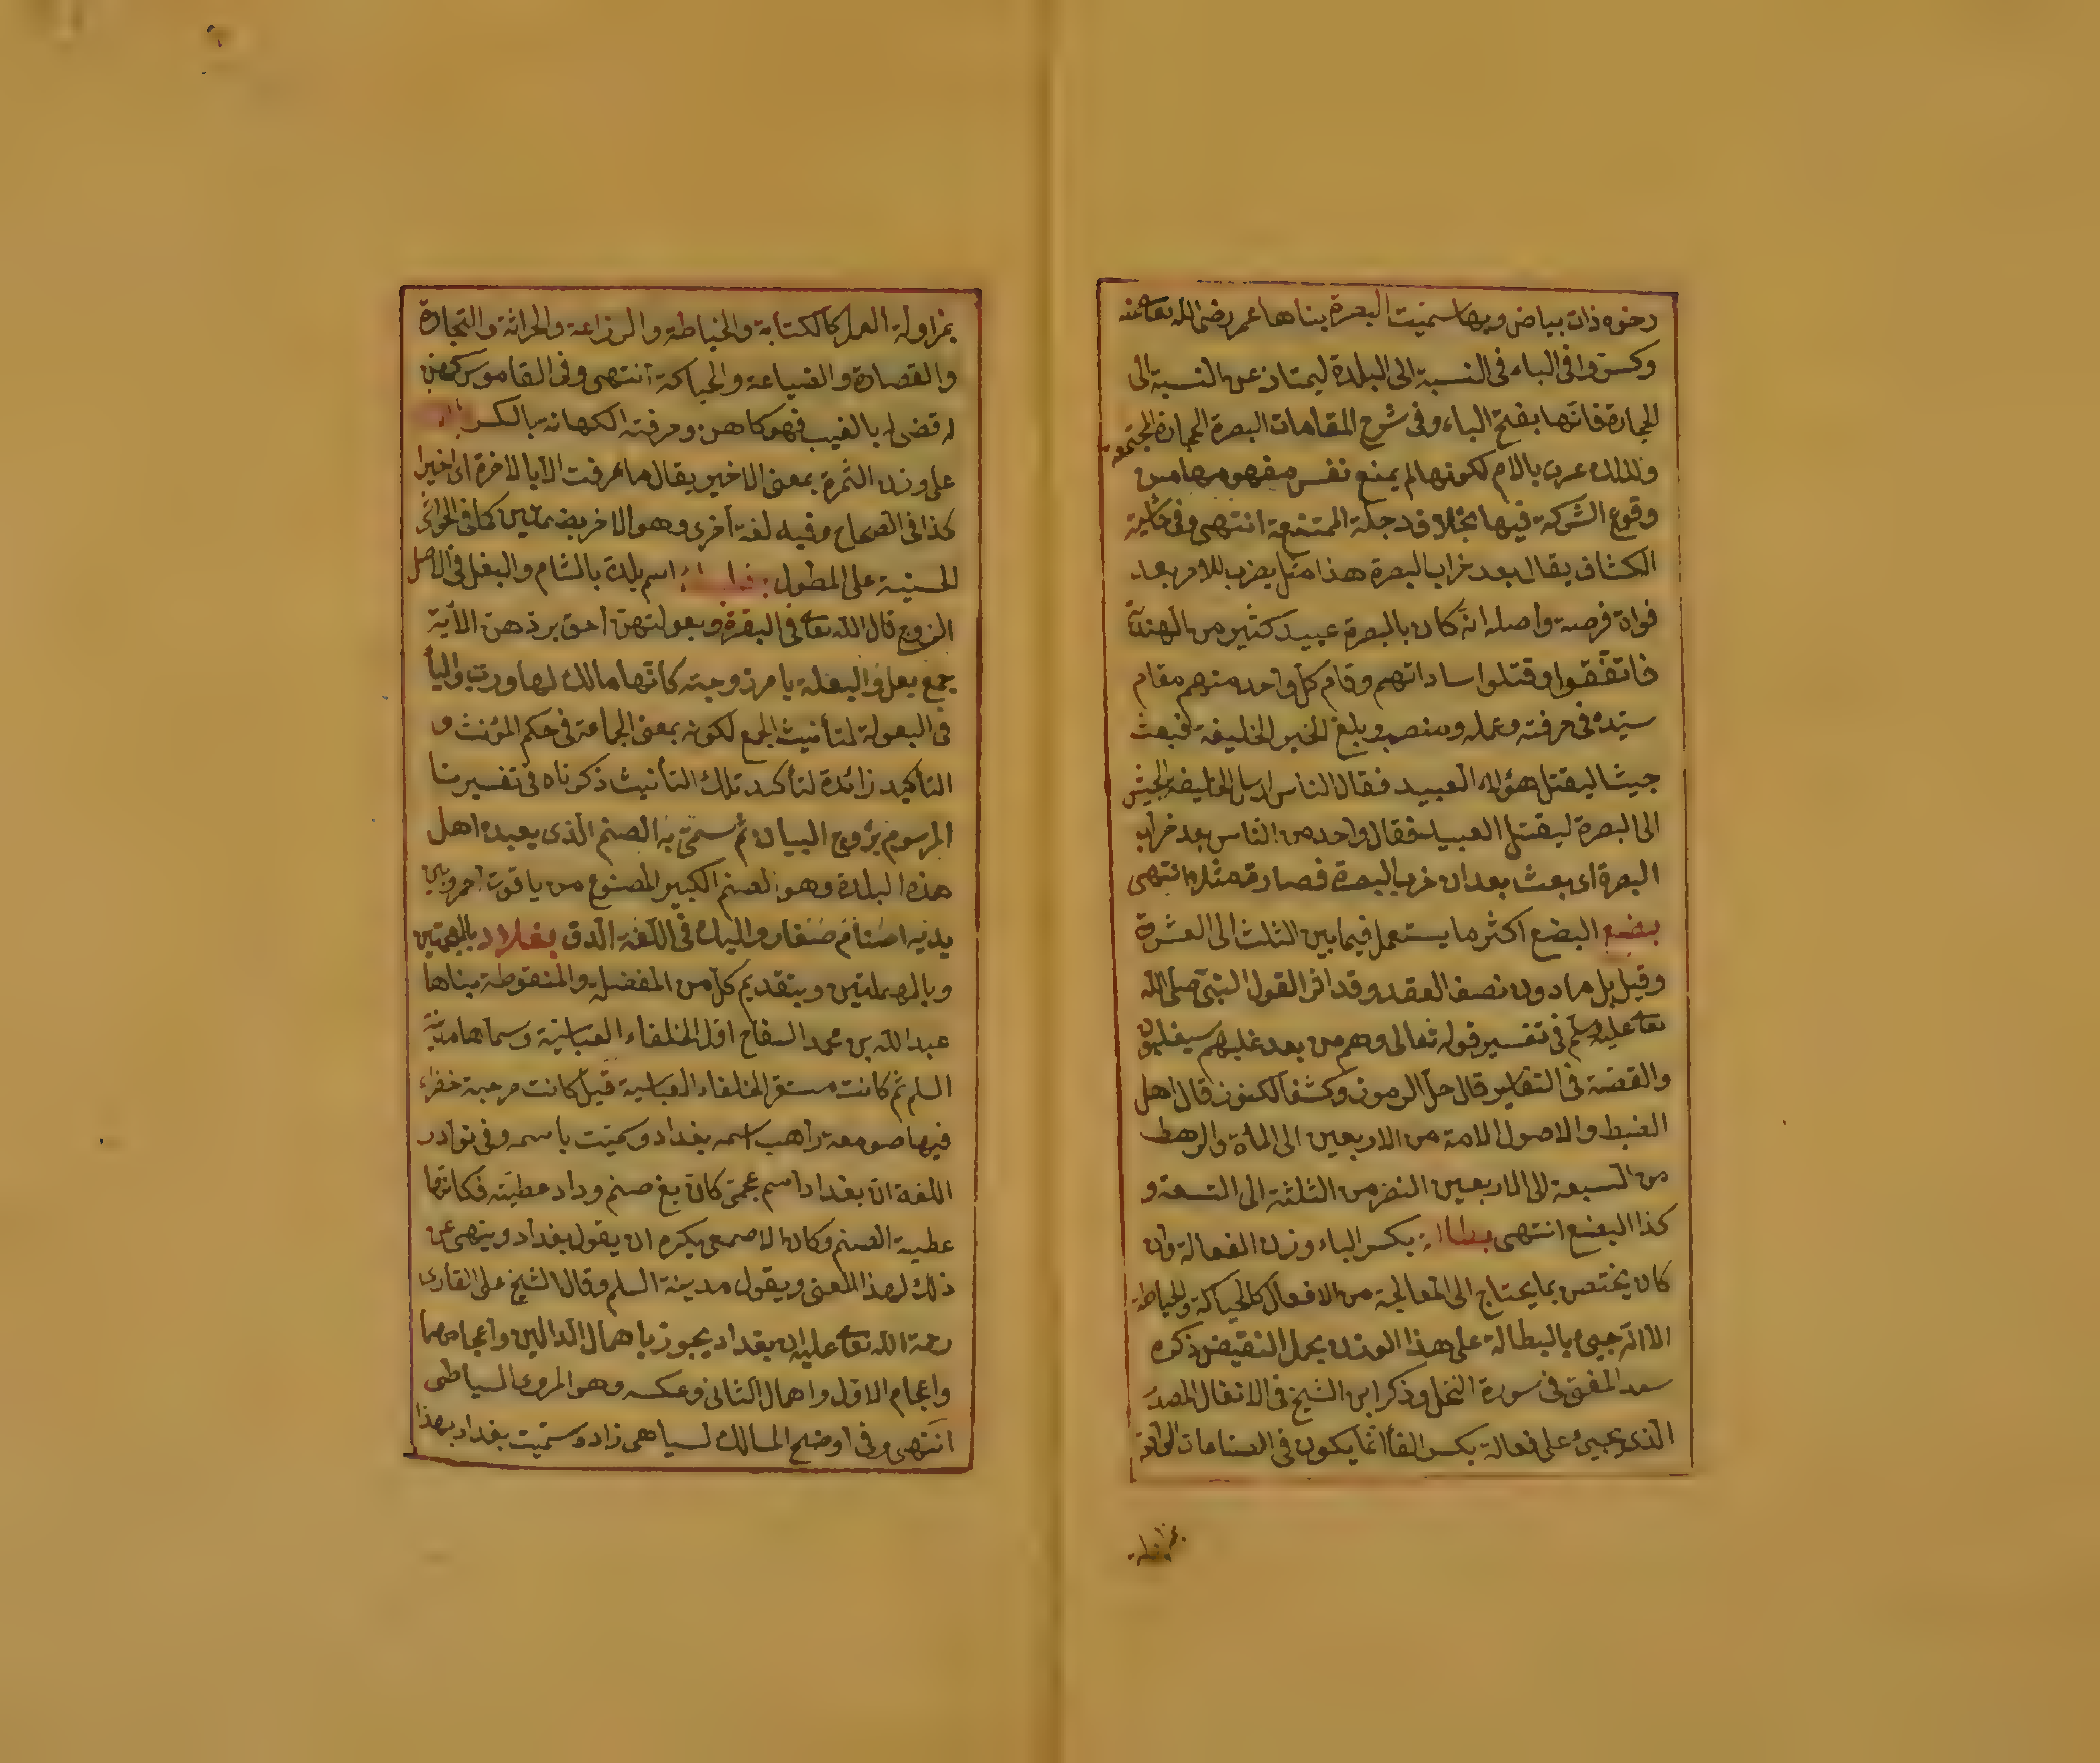 رخوه ذات بياض وبها سميت البصرة بناها عمر رضى الله تعا عنه
وكسروا فى الباء فى النسبة الى البلدة ليمتاز عن النسبة الى
الحجارة فانها بفتح الباء وفى شرح المقامات البصرة الحجارة المجتمعة
ولذلك عرف بالام لكونها لم يمنع نفس مفهومها من
وقوع الشركة فيها بخلاف دجلة الممتنعة انتهى وفى حاشية
الكشاف يقال بعد خراب البصرة هذا مثل يضرب للامر بعد
فوات فرصة واصله انه كان بالبصرة عبيد كثير من الهند
فاتفقوا وقتلوا ساداتهم وقام كل واحد منهم مقام
سيده فى حرفته وعمله ومنصبه وبلغ الخبر الخليفة فبعث
جيشا ليقتل هؤلاء العبيد فقال الناس ارسل الخليفة الجيش
الى البصرة ليقتل العبيد فقال واحد من الناس بعد خراب
البصرة اى بعث بعد ان خرب البصرة فصار مثلا انتهى
بضع البضع اكثر ما يستعمل فيما بين الثلث الى العشرة
وقيل بل ما دون نصف العقد وقد اثر القول النبى صلى الله
تعا عليه وسلم فى تفسير قوله تعالى وهم من بعد غلبهم سيغلبون
والقصة فى التفاسير قال حل الرموز وكشف الكنوز قال اهل
الضبط والاصول الامة من الاربعين الى المأة والرهط
من السبعة الى الاربعين النفر من الثلثة الى التسعة و
كذا البضع انتهى بطالة بكسر الباء وزن الفعالة وان
كان يختص بما يحتاج الى المعالجة من الافعال كالحياكة والخياطة
الا انه جيىء بالبطالة على هذا الوزن بحمل النقيض ذكره
سعد المفتى فى سورة النحل وذكر ابن الشيخ فى الانفال المصدر
الذى يجيىء على فعالة بكسر الفأ انما يكون فى الصناعات
بمزاولة
بمزاولة العمل كالكتابة والخياطة والزراعة والحراثة والتجارة
والقصارة والصياغة والحياكة انتهى وفى القاموس كهن
له قضى له بالغيب فهو كاهن وحرفته الكهانة بالكسر
على وزن الثمرة بمعنى الاخير يقال ما عرفت الا بالاخرة اى اخيرا
كذا فى الصحاح وفيه لغة اخرى وهو الاخر بضمتين كما فى الحواشى
الحسنية على المطول اسم بلدة بالشام والبعل فى الاصل
الزوج قال الله تعا فى البقرة وبعولتهن احق بردهن الآية
جمع بعل والبعلة يا مر زوجته كانها مالك لها ورب والتأ
فى البعولة لتأنيث الجمع لكونه بمعنى الجماعة فى حكم المؤنث و
التأكيد زائدة لتأكيد تلك التأنيث ذكرناه فى تفسيرنا
المرسوم بروح البيان ثم سمى به الصنم الذى يعبده اهل
هذه البلدة وهو الصنم الكبير المصنوع من ياقوت احمر وبين
يديه اصنام صغار والبك فى اللغة الدق بغداد بالمعجمتين
وبالمهملتين وبتقديم كل من المفضلة والمنقوطة بناها
عبد الله بن محمد السفاح اول الخلفاء العباسية وسماها مدينة
السلم ثم كانت مستقر الخلفاء العباسية قيل كانت مرجبة خضراء
فيها صومعة راهب اسمه بغداد وسميت باسمه وفى نوادر
اللغة ان بغداد اسم عجمى كان بغ صنم وداد عطيته فكانها
عطية الصنم وكان الاصمعى يكره ان يقول بغداد وينهى عن
ذلك لهذا المعنى ويقول مدينة السلم وقال الشيخ على القارى
رحمة الله تعا عليه ان بغداد يجوز باهمال الدالين واعجامهما
واعجام الاول واهمال الثانى وعكسه وهو المروى السياطى
انتهى وفى اوضح المسالك لسياهى زاده سميت بغداد بهذا